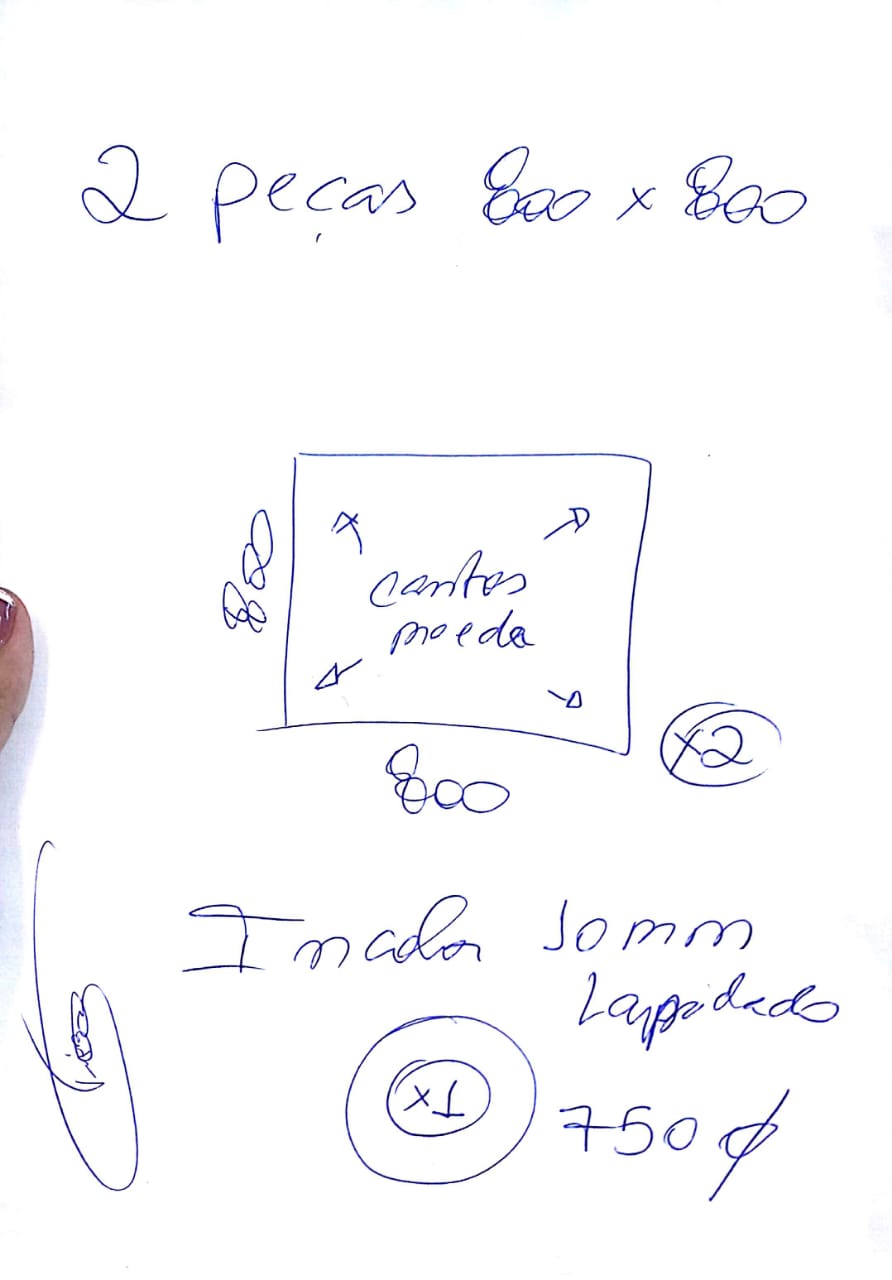 2 peças 800 x 800
800
cantos
moeda
800
x2
Incolor 10mm
Lapidado
x1
750 ϕ